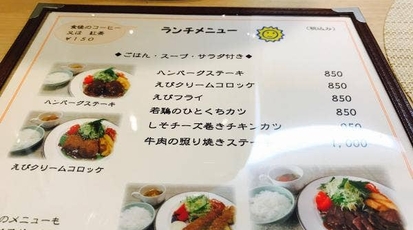 食後のコーヒー
又は 紅茶
¥150
ランチメニュー
(税込み)
◆ごはん・スープ・サラダ付き◆
ハンバーグステーキ 850
えびクリームコロッケ 850
えびフライ 850
若鶏のひとくちカツ 850
しそチーズ巻きチキンカツ 850
牛肉の照り焼きステーキ 1,000
ハンバーグステーキ
えびクリームコロッケ
のメニューも